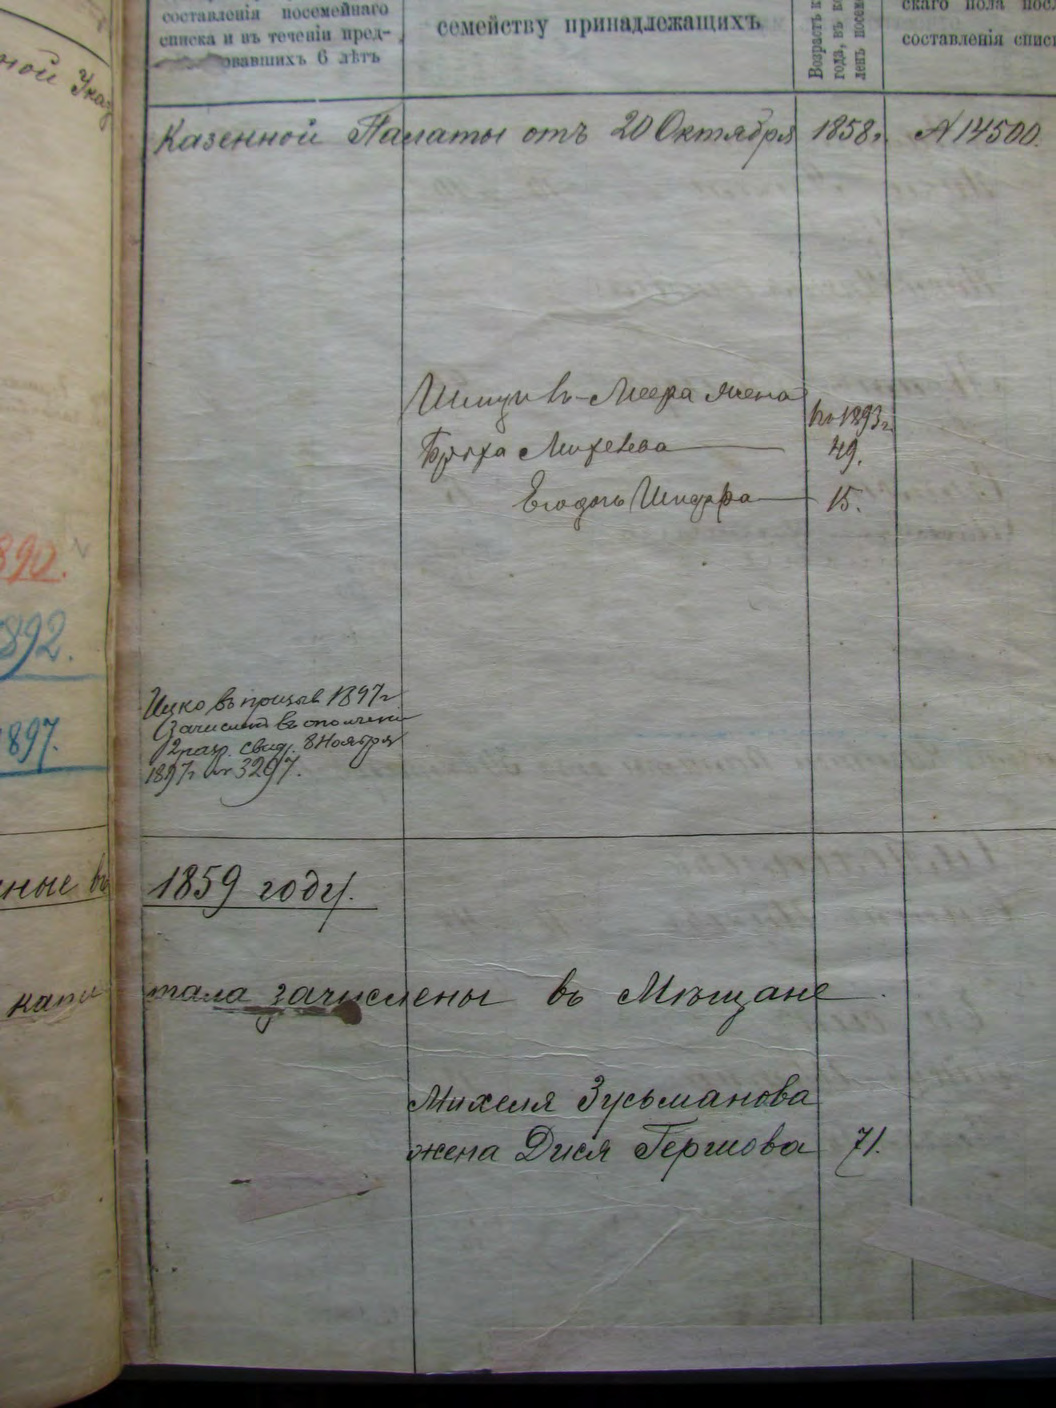 составленія посемейнаго
списка и въ теченіи пред-
овавшихъ 6 лѣтъ
семейству принадлежащихъ
Возрастъ к
года, въ к
ленъ посем
скаго пола посл
составленія списк
ной Указ
Казенной Палаты отъ 20 Октября 1858 г. № 14500.
Меера жена
въ 1893 г.
49.
Его дочь 15.
890.
892.
897.
Ицко въ призыв 1897 г
Зачислен въ ополчение
2 разр. свид. 8 Ноября
1897 г № 3297.
нные въ
1859 году.
капи
тала зачислены въ Мѣщане
Михеля Зусьманова
жена Дися Гершова 71.